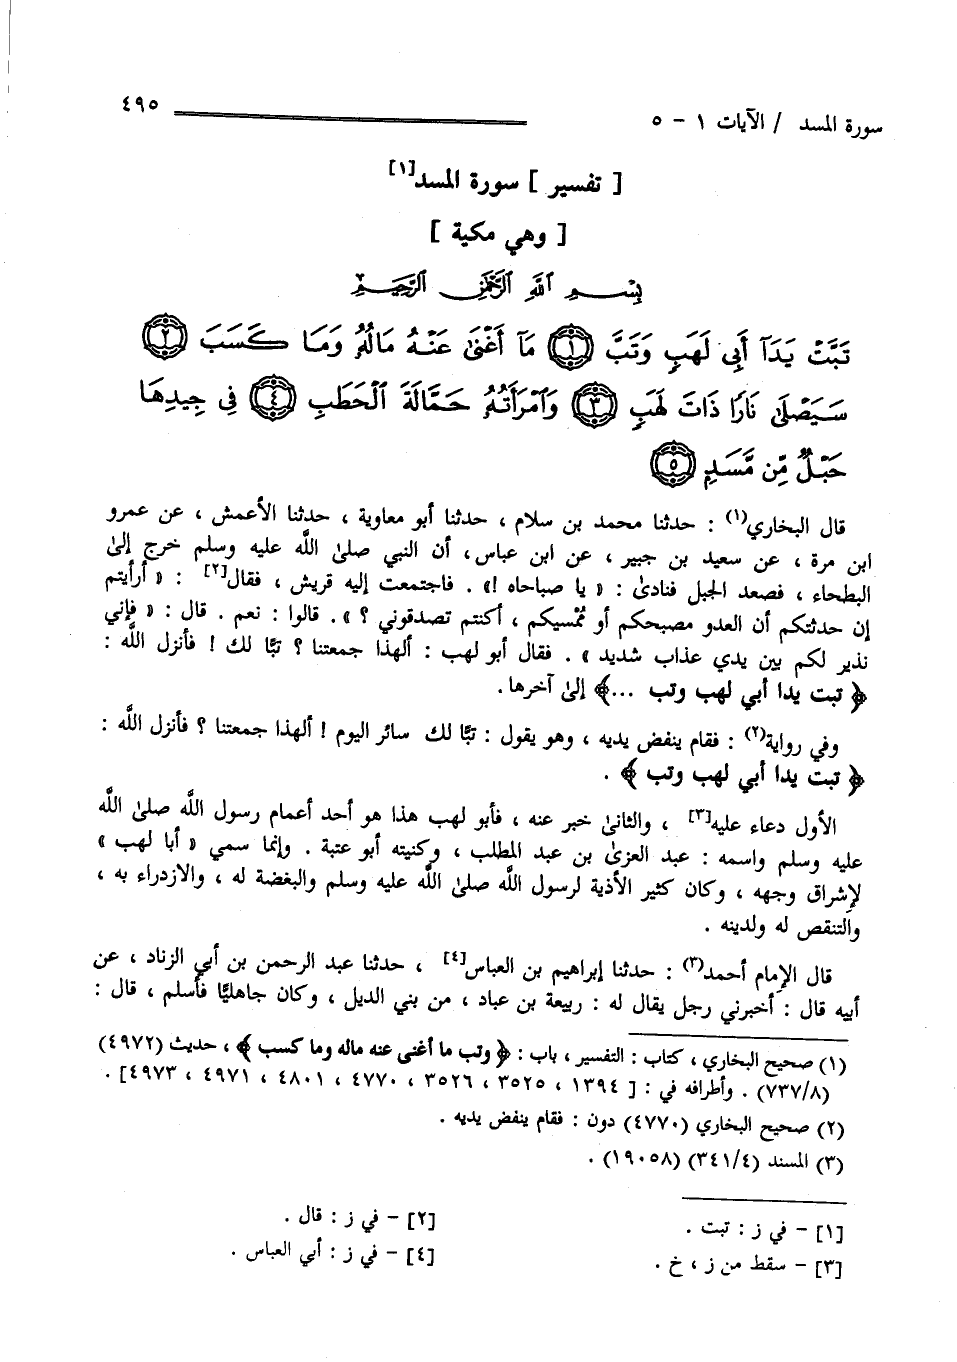 سورة المسد / الآيات ١ - ٥ ٤٩٥
[ تفسير ] سورة المسد[١]
[ وهي مكية ]
بِسْمِ اللَّهِ الرَّحْمَٰنِ الرَّحِيمِ
تَبَّتْ يَدَآ أَبِى لَهَبٍ وَتَبَّ ۝١ مَآ أَغْنَىٰ عَنْهُ مَالُهُۥ وَمَا كَسَبَ ۝٢
سَيَصْلَىٰ نَارًا ذَاتَ لَهَبٍ ۝٣ وَٱمْرَأَتُهُۥ حَمَّالَةَ ٱلْحَطَبِ ۝٤ فِى جِيدِهَا
حَبْلٌ مِّن مَّسَدٍ ۝٥
قال البخاري(١) : حدثنا محمد بن سلام ، حدثنا أبو معاوية ، حدثنا الأعمش ، عن عمرو
ابن مرة ، عن سعيد بن جبير ، عن ابن عباس، أن النبي صلىٰ اللَّه عليه وسلم خرج إلىٰ
البطحاء ، فصعد الجبل فنادىٰ : « يا صباحاه !» . فاجتمعت إليه قريش ، فقال[٢] : « أرأيتم
إن حدثتكم أن العدو مصبحكم أو مُمْسيكم ، أكنتم تصدقوني ؟ » . قالوا : نعم . قال : « فإني
نذير لكم بين يدي عذاب شديد » . فقال أبو لهب : ألهذا جمعتنا ؟ تبًّا لك ! فأنزل اللَّه :
﴿ تبت يدا أبي لهب وتب ...﴾ إلىٰ آخرها.
وفي رواية(٢) : فقام ينفض يديه ، وهو يقول : تبًّا لك سائر اليوم ! ألهذا جمعتنا ؟ فأنزل اللَّه :
﴿ تبت يدا أبي لهب وتب ﴾ .
الأول دعاء عليه[٣] ، والثانىٰ خبر عنه ، فأبو لهب هذا هو أحد أعمام رسول اللَّه صلىٰ اللَّه
عليه وسلم واسمه : عبد العزىٰ بن عبد المطلب ، وكنيته أبو عتبة . وإنما سمي « أبا لهب »
لإشراق وجهه ، وكان كثير الأذية لرسول اللَّه صلىٰ اللَّه عليه وسلم والبغضة له ، والازدراء به ،
والتنقص له ولدينه .
قال الإمام أحمد(٣) : حدثنا إبراهيم بن العباس[٤] ، حدثنا عبد الرحمن بن أبي الزناد ، عن
أبيه قال : أخبرني رجل يقال له : ربيعة بن عباد ، من بني الديل ، وكان جاهليًّا فأسلم ، قال :
(١) صحيح البخاري ، كتاب : التفسير ، باب : ﴿ وتب ما أغنى عنه ماله وما كسب ﴾ ، حديث (٤٩٧٢)
(٧٣٧/٨) . وأطرافه في : [ ١٣٩٤ ، ٣٥٢٥ ، ٣٥٢٦ ، ٤٧٧٠ ، ٤٨٠١ ، ٤٩٧١ ، ٤٩٧٣] .
(٢) صحيح البخاري (٤٧٧٠) دون : فقام ينفض يديه .
(٣) المسند (٣٤١/٤) (١٩٠٥٨) .
[١] - في ز : تبت . [٢] - في ز : قال .
[٣] - سقط من ز ، خ . [٤] - في ز : أبي العباس .